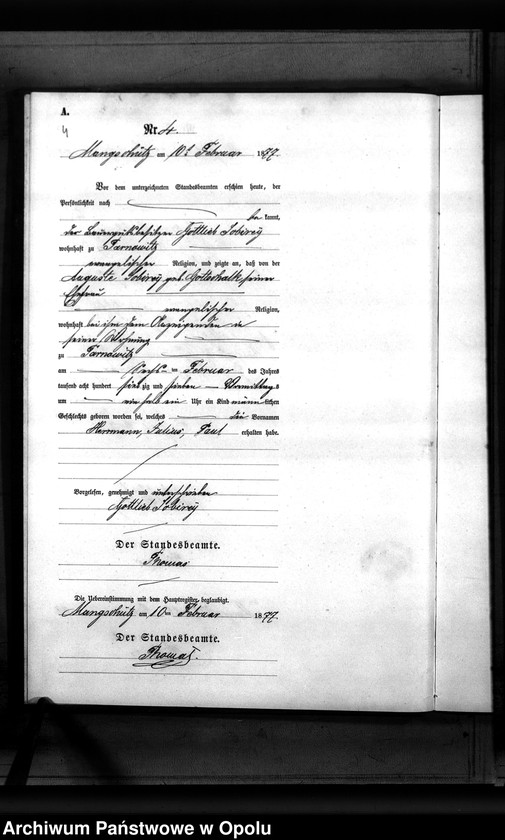 A.
4
Nr. 4.
Mangschütz am 10t Februar 1877.
Vor dem unterzeichneten Standesbeamten erschien heute, der
Persönlichkeit nach
bekannt,
der Bauergutsbesitzer Gottlieb Sobirey
wohnhaft zu Tarnowitz
evangelischer Religion, und zeigte an, daß von der
Auguste Sobirey geb. Gottschalk seiner
Ehefrau
evangelischer Religion,
wohnhaft bei ihm dem Anzeigenden in
seiner Wohnung
zu Tarnowitz
am ten Februar des Jahres
tausend acht hundert siebzig und sieben Vormittags
um Uhr ein Kind männlichen
Geschlechts geboren worden sei, welches die Vornamen
Herrmann, Julius, Paul erhalten habe.
Vorgelesen, genehmigt und unterschrieben
Gottlieb Sobirey
Der Standesbeamte.
Thomas
Die Uebereinstimmung mit dem Hauptregister beglaubigt.
Mangschütz am 10ten Februar 1877.
Der Standesbeamte.
Thomas.
Archiwum Państwowe w Opolu